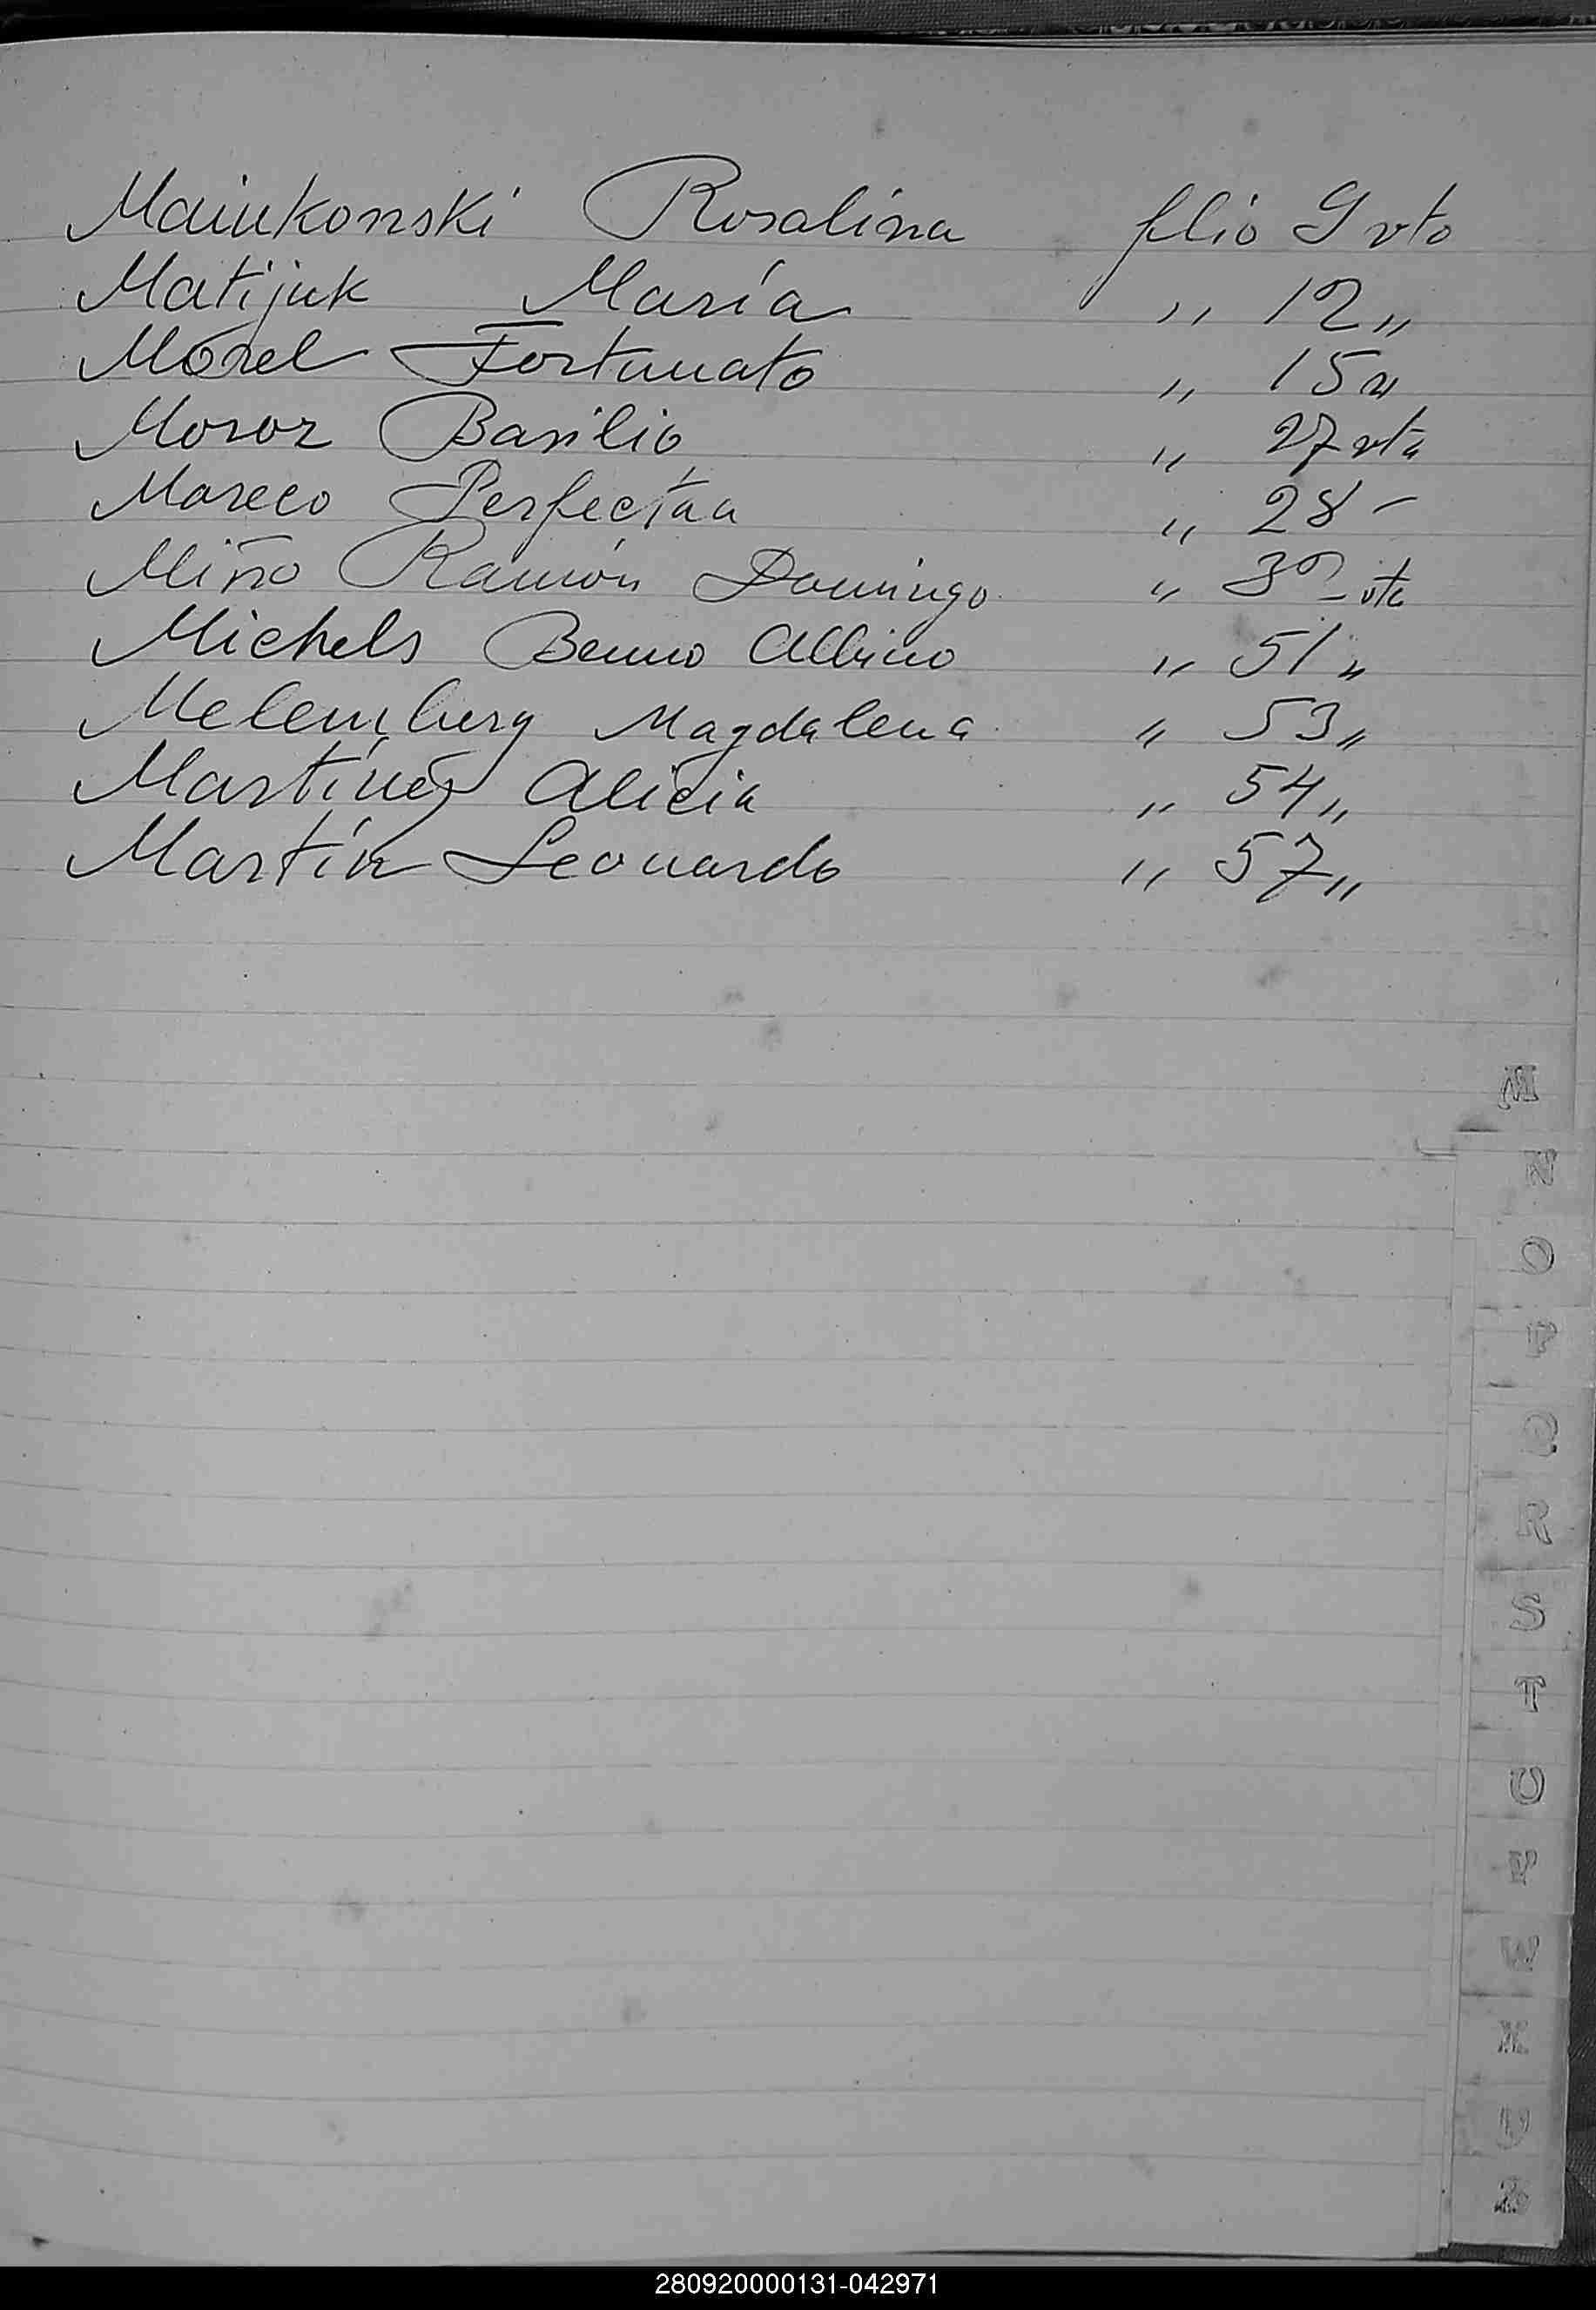 Mainkonski Rosalina flio 9 vto
Matijuk María " 12 "
Morel Fortunato " 15 "
Moroz Basilio " 27 vta
Mareco Perfectaa " 28 -
Miño Ramón Domingo " 32 vta
Michels Benno Albino " 51 "
Melemburg Magdalena " 53 "
Martínez Alicia " 54 "
Martín Leonardo " 57 "
M
N
O
P
Q
R
S
T
U
V
W
X
Y
Z
280920000131-042971